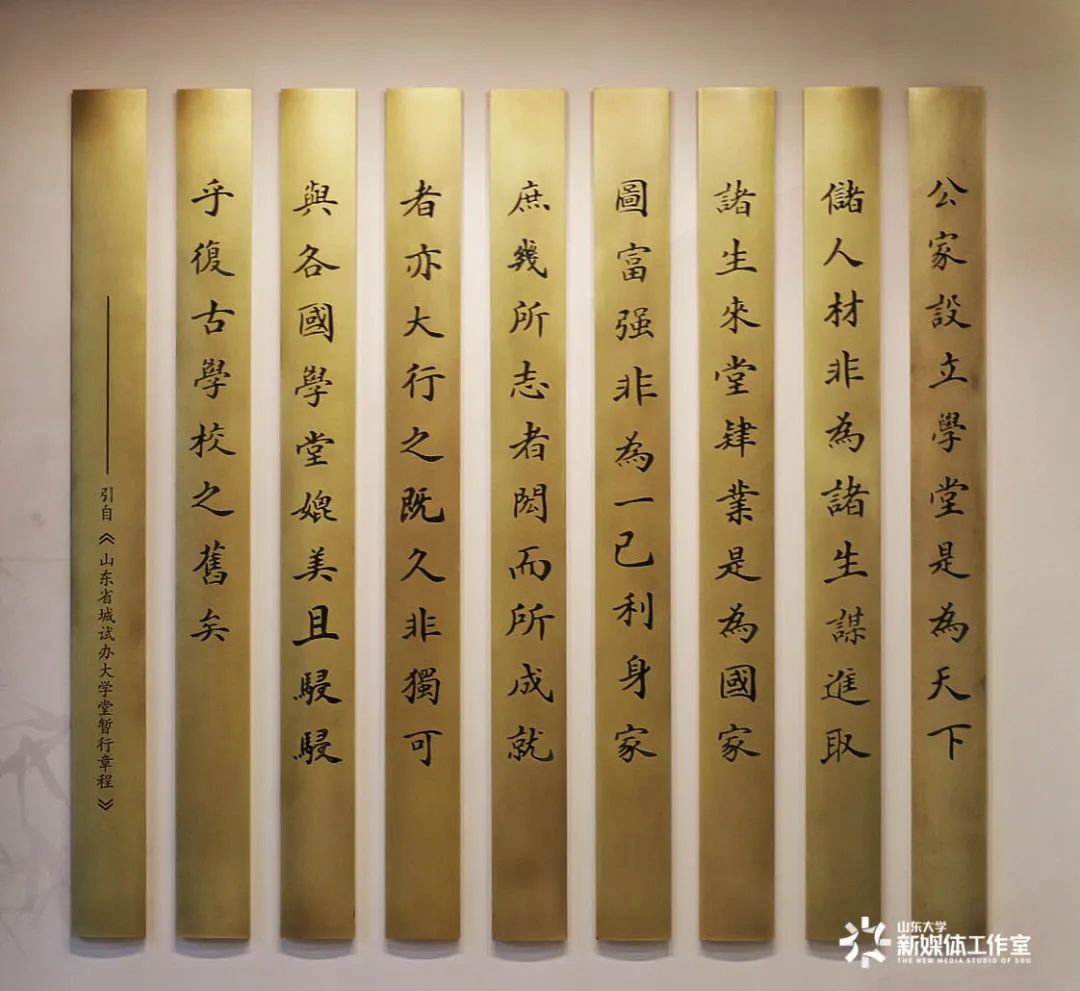 公家設立學堂是為天下
儲人材非為諸生謀進取
諸生來堂肄業是為國家
圖富强非為一己利身家
庶幾所志者閎而所成就
者亦大行之既久非獨可
與各國學堂媲美且駸駸
乎復古學校之舊矣
——引自《山东省城试办大学堂暂行章程》
山东大学
新媒体工作室
THE NEW MEDIA STUDIO OF SDU